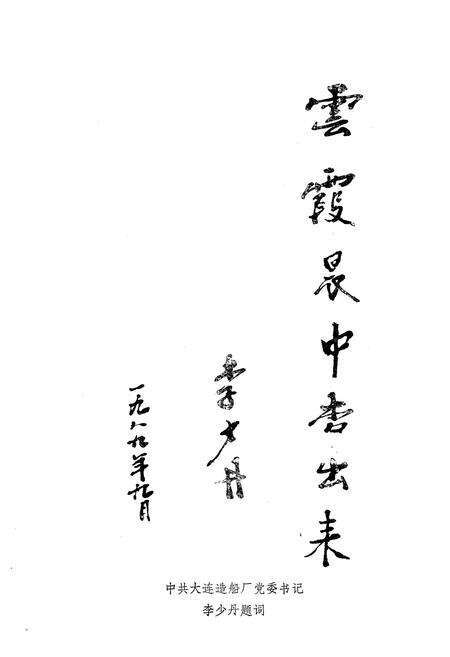 雲霞晨中出来
李少丹
一九八九年九月
中共大连造船厂党委书记
李少丹题词